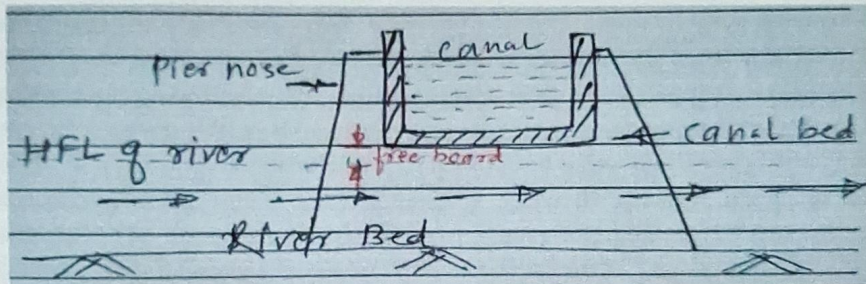 canal
Pier nose
canal bed
HFL of river
free board
River Bed